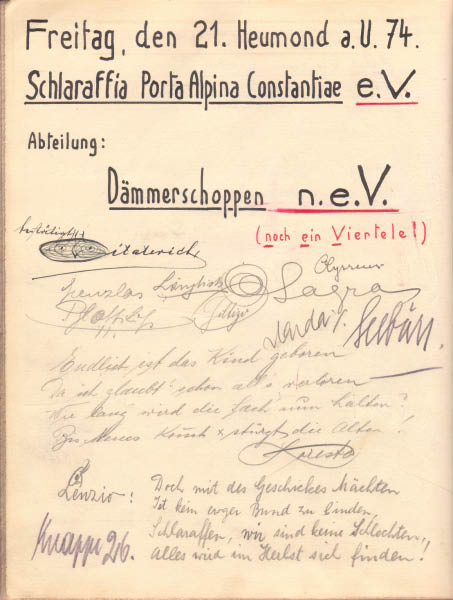 Freitag, den 21. Heumond a.U. 74.
Schlaraffia Porta Alpina Constantiae e.V.
Abteilung:
Dämmerschoppen n.e.V.
(noch ein Viertele!)
bestätigt:
Sagra
Seebär.
Endlich ist das Kind geboren
Da ich glaubt' schon all's verloren
Wie lang wird die Sach' nun halten?
Bis Neues kommt & stürzt die Alten!
Presto
Lenzio: Doch mit des Geschickes Mächten
Ist kein ew'ger Bund zu binden,
Schlaraffen, wir sind keine Schlechten,
Alles wird im Herbst sich finden!
Knappe 26.